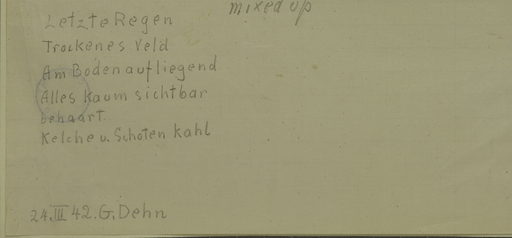 mixed up
Letzte Regen
Trockenes Veld
Am Boden aufliegend
Alles kaum sichtbar
behaart.
Kelche u. Schoten kahl
24.III 42. G. Dehn